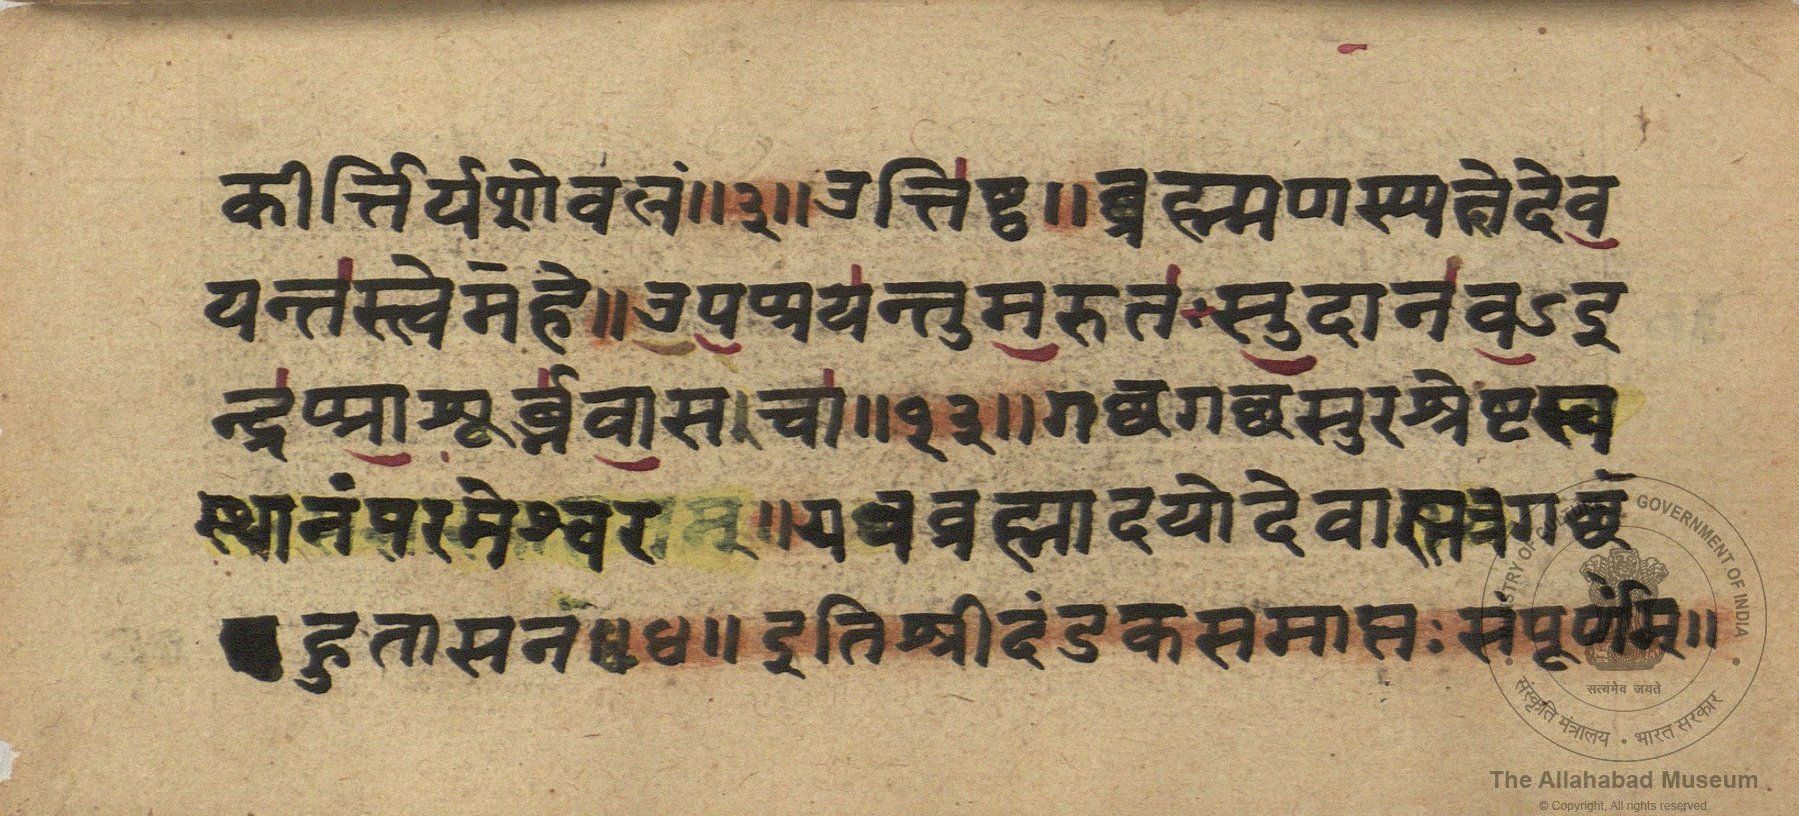 कीर्त्तिर्यशोवलं॥३॥उत्तिष्ठ॥ब्रह्मणस्पतेदेव
यन्तस्त्वेमहे॥उपप्रयन्तुमरुतःसुदानवऽइ
न्द्रप्राशूर्ब्भवासचा॥१३॥गछगछसुरश्रेष्टस्व
स्थानंपरमेश्वर॥यत्रव्रह्मादयोदेवास्तत्रगछ
हुतासन॥४॥इतिश्रीदंडकसमाप्तःसंपूर्णम्॥
MINISTRY OF CULTURE, GOVERNMENT OF INDIA
सत्यमेव जयते
संस्कृति मंत्रालय • भारत सरकार
The Allahabad Museum
© Copyright, All rights reserved.